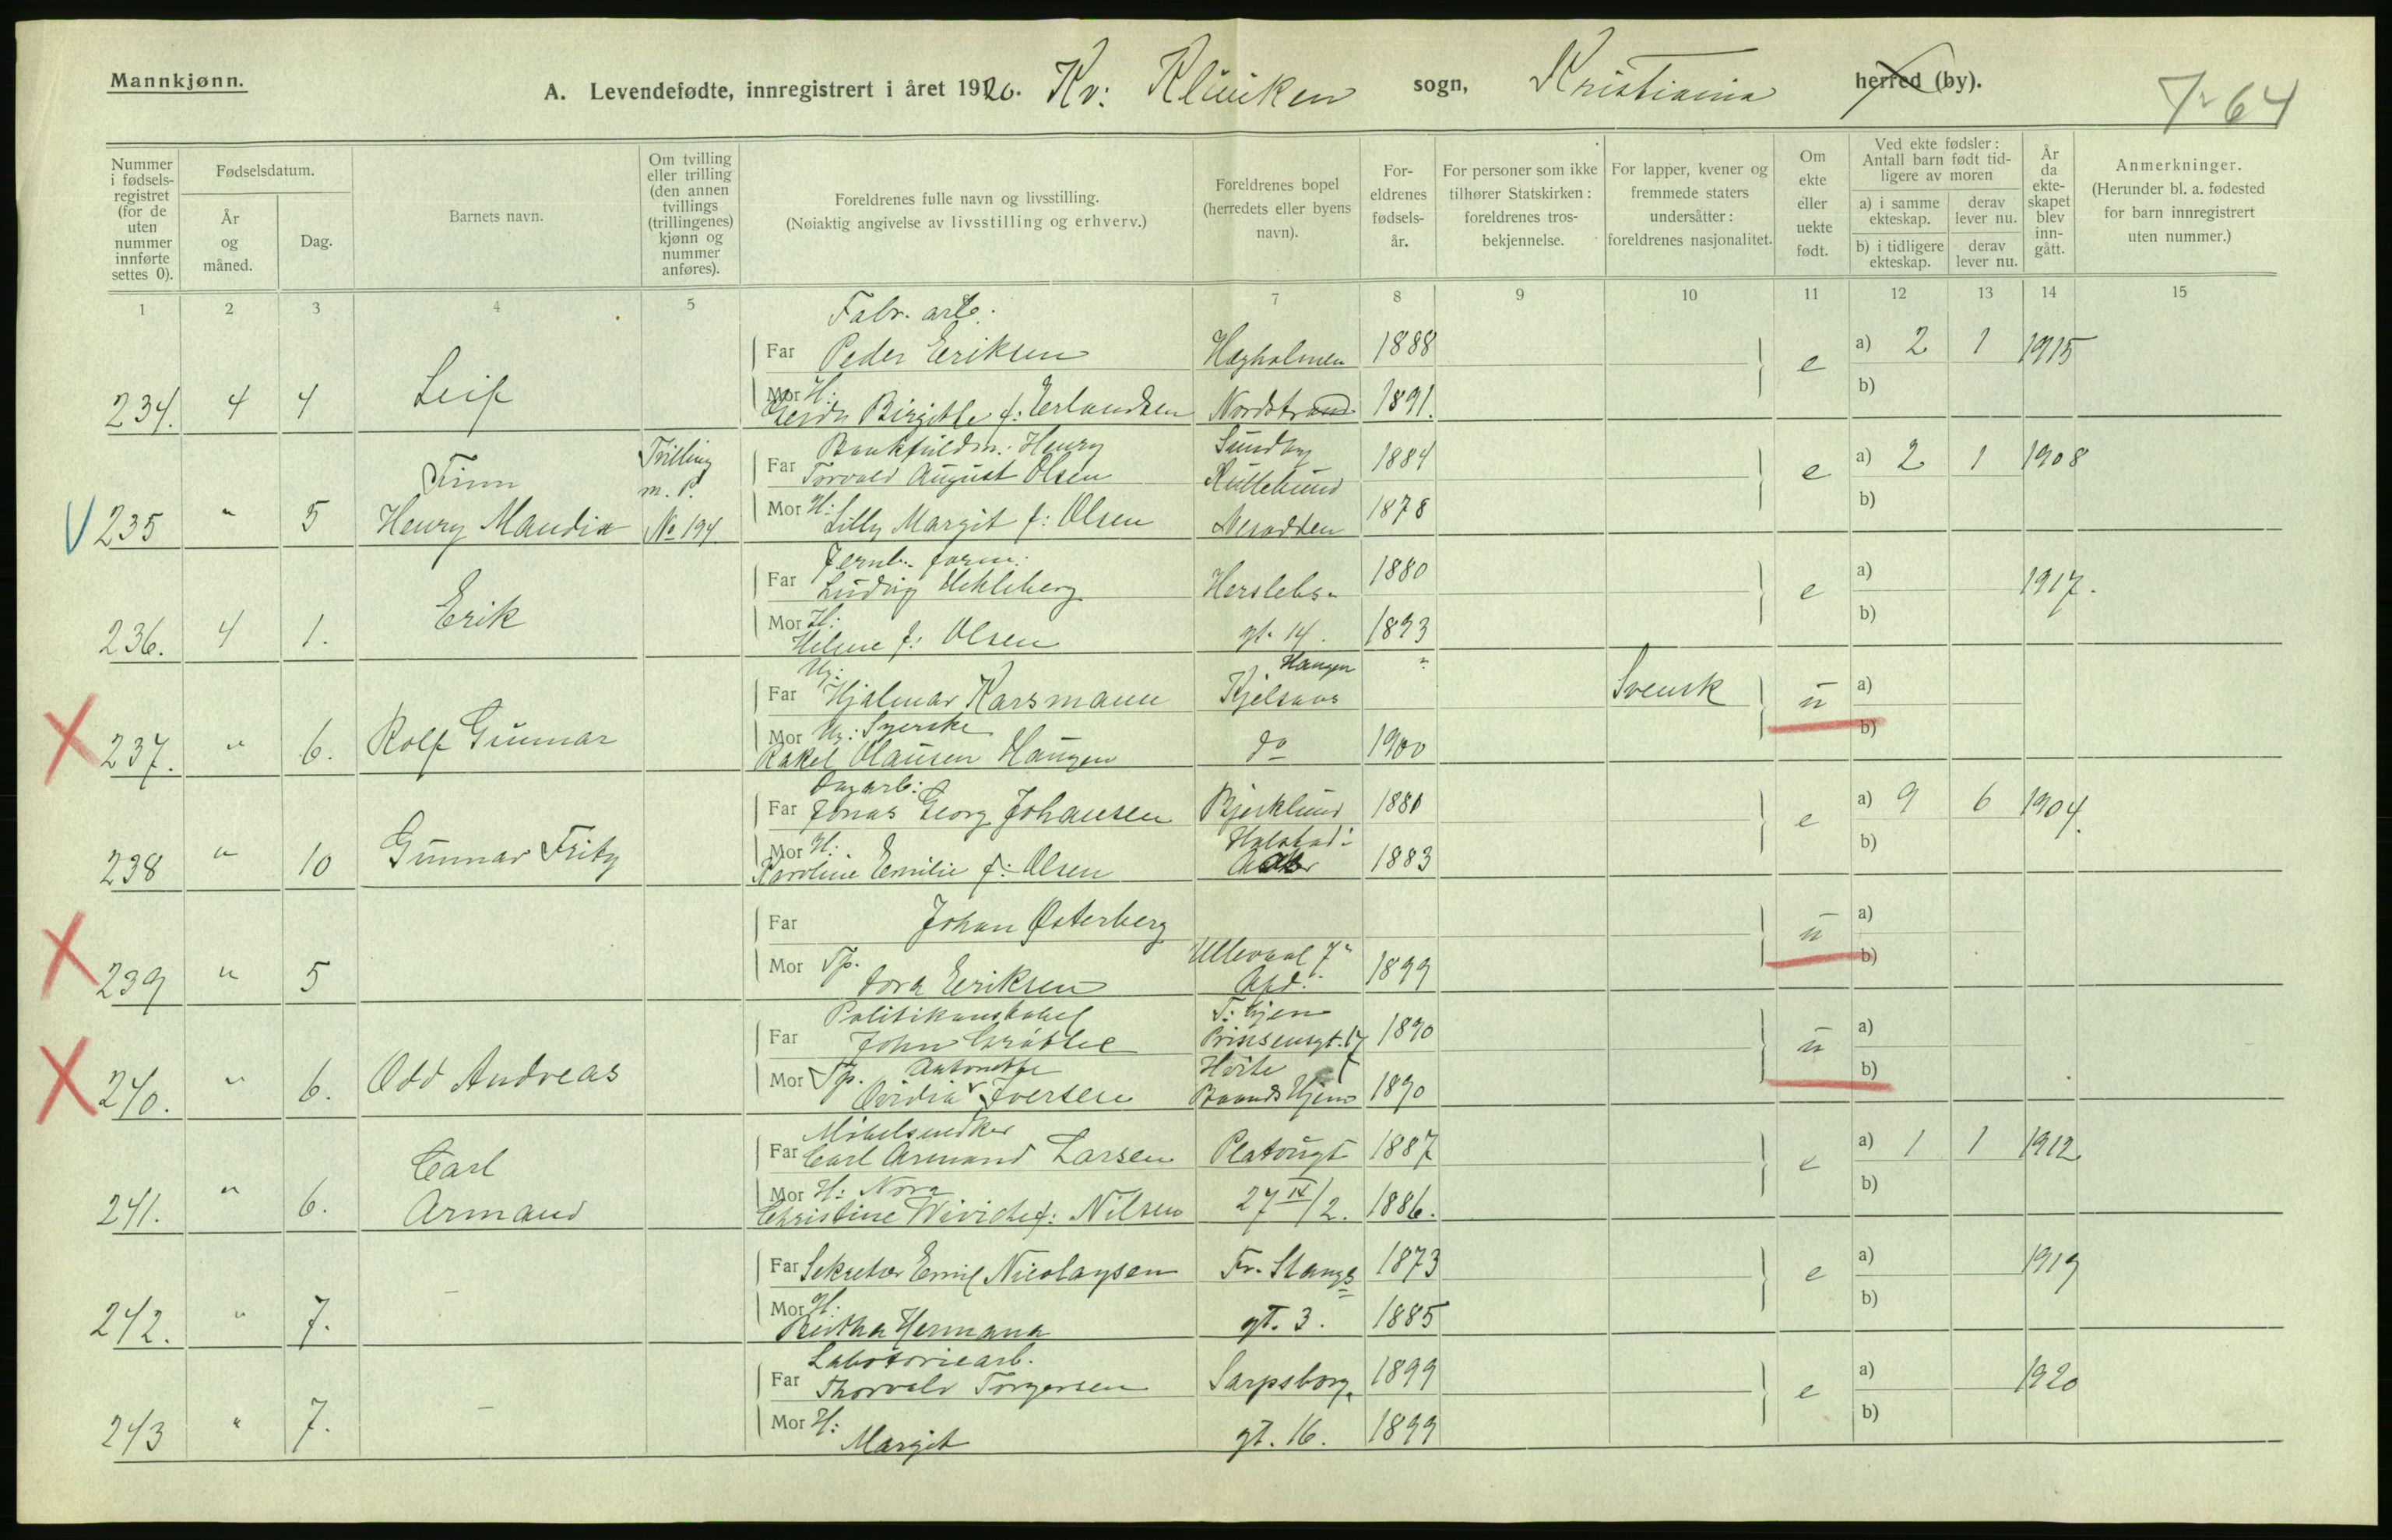 Mannkjønn.
A. Levendefødte, innregistrert i året 1920. Kv: Kliniken sogn, Kristiania herred (by).
64
Nummer i fødsels-registret (for de uten nummer innførte settes 0).
Fødselsdatum.
År og måned.
Dag.
Barnets navn.
Om tvilling eller trilling (den annen tvillings (trillingenes) kjønn og nummer anføres).
Foreldrenes fulle navn og livsstilling.
(Nøiaktig angivelse av livsstilling og erhverv.)
Foreldrenes bopel (herredets eller byens navn).
For-eldrenes fødsels-år.
For personer som ikke tilhører Statskirken: foreldrenes tros-bekjennelse.
For lapper, kvener og fremmede staters undersåtter: foreldrenes nasjonalitet.
Om ekte eller uekte født.
Ved ekte fødsler: Antall barn født tid-ligere av moren
a) i samme ekteskap.
derav lever nu.
b) i tidligere ekteskap.
derav lever nu.
År da ekte-skapet blev inn-gått.
Anmerkninger.
(Herunder bl. a. fødested for barn innregistrert uten nummer.)
1 2 3 4 5 6 7 8 9 10 11 12 13 14 15
Fabr. arb.
Far Peder Eriksen Hægholmen 1888 e a) 2 1 1915
234. 4 4 Leif
Mor H: Birgitte f: Erlandsen Nordstrand 1891. b)
Tvilling m. P. No 194.
Bankfuldm: Henry Sundby
Far Torvald August Olsen 1884 e a) 2 1 1908
235 " 5 Finn Henry
Mor H: Lilly Margit f: Olsen Nesodden 1878 b)
Jernb. form:
Far Ludvig Hekleberg Herslebs- 1880 e a) 1917.
236. 4 1. Erik
Mor H: Helene f: Olsen gt. 14. 1893 b)
Ug: Haugen "
Far Hjalmar Karsmann Kjelsaas Svensk u a)
237. " 6. Rolf Gunnar
Mor Ug: Syerske
Rakel Olausen Haugen do 1900 b)
Dagarb:
Far Jonas Georg Johansen Bjerklund 1881 e a) 9 6 1904.
238 " 10 Gunnar Fritz
Mor H: Karoline Emilie f: Olsen Aker 1883 b)
Far Johan Østerberg u a)
239 " 5
Mor Tp. Dora Eriksen Ullevaal 7' Afd. 1899 b)
Politikonstabel T: hjem
Far John Prinsensgt. 17 1890 u a)
240. " 6. Odd Andreas
Mor Tp. Antonette Hvite
Ovidia Iversen Baands Hjem 1890 b)
Møbelsnedker
Far Carl Armand Larsen Platougt 1887 e a) 1 1 1912
241. " 6. Carl Armand
Mor H: Nora
Christine f: Nilsen 27 IV/2. 1886. b)
Far Sekretær Emil Nicolaysen Fr. Stangs 1873 e a) 1919
242. " 7. –
Mor H: Hermana gt. 3. 1885 b)
Labotoriearb.
Far Thorvald Torgersen Sarpsborg. 1899 e a) 1920
243 " 7. –
Mor H: Margit gt. 16. 1899 b)